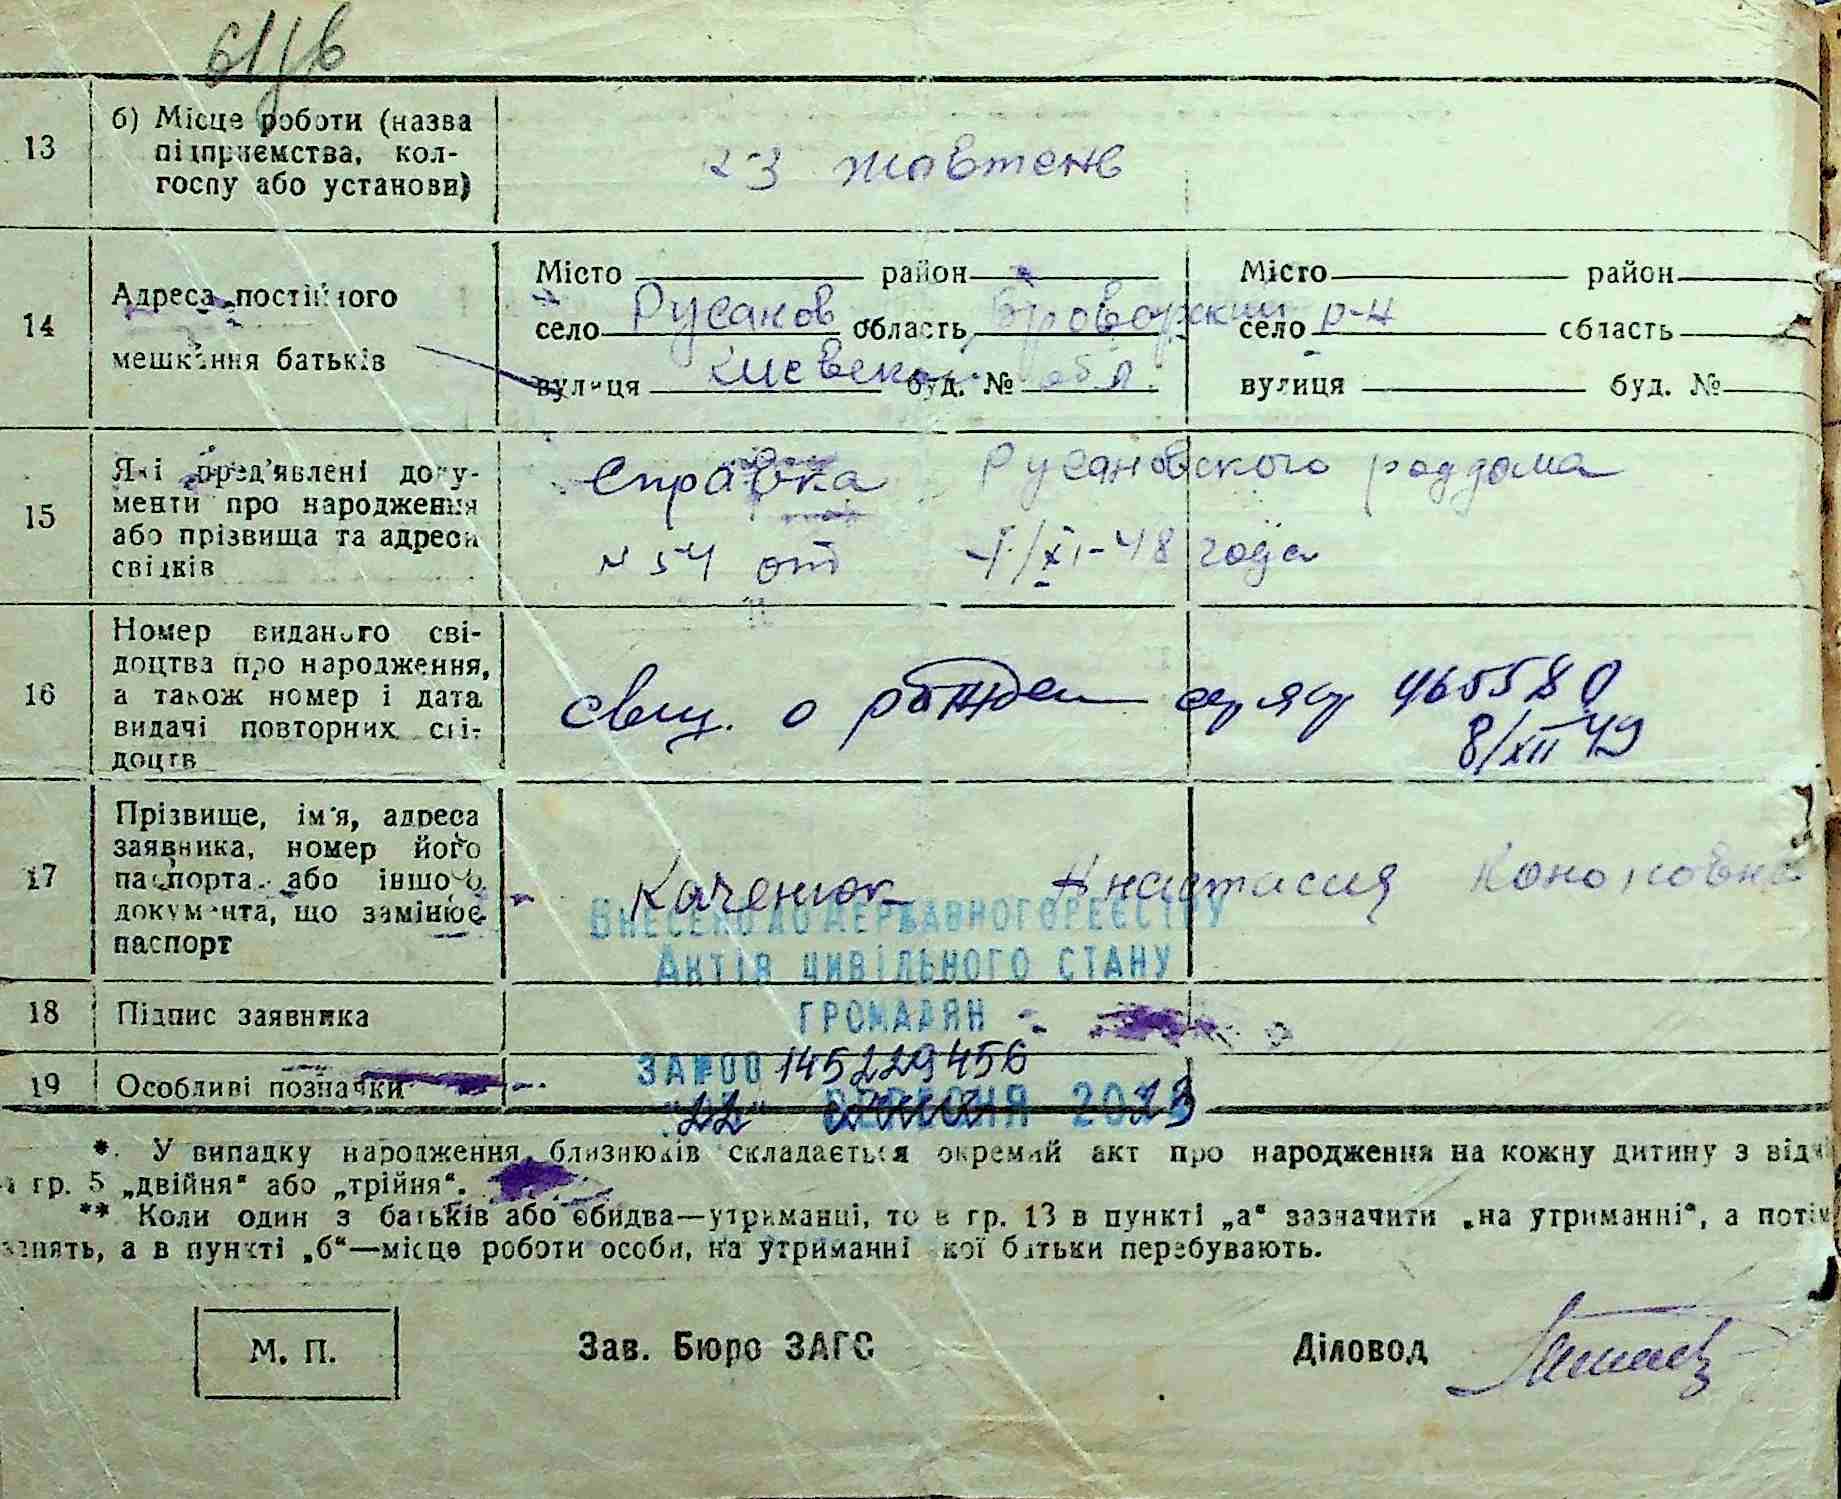 13
б) Місце роботи (назва
підприємства, кол-
госпу або установи)
23 жовтень
14
Адреса постійного
мешкання батьків
Місто район
село Русанов область Броварский р-н
вулиця Киевск. буд. № обл.
Місто район
село область
вулиця буд. №
15
Які пред'явлені доку-
менти про народження
або прізвища та адреси
свідків
Справка Русановского роддома
N 54 от /XI-48 года
16
Номер виданого сві-
доцтва про народження,
а також номер і дата
видачі повторних сві-
доцтв
свид. о рожден 465580
8/XII 49
17
Прізвище, ім'я, адреса
заявника, номер його
паспорта або іншого
документа, що замінює
паспорт
Каченюк Анастасия Кононовна
Внесено до Державного реєстру
Актів цивільного стану
громадян
18
Підпис заявника
19
Особливі позначки
ЗА №00 145229456
"22" вересня 2023
*. У випадку народження близнюків складається окремий акт про народження на кожну дитину з від
гр. 5 „двійня“ або „трійня“.
** Коли один з батьків або обидва—утриманці, то в гр. 13 в пункті „а“ зазначити „на утриманні“, а потім
а в пункті „б“—місце роботи особи, на утриманні кої батьки перебувають.
М. П.
Зав. Бюро ЗАГС
Діловод